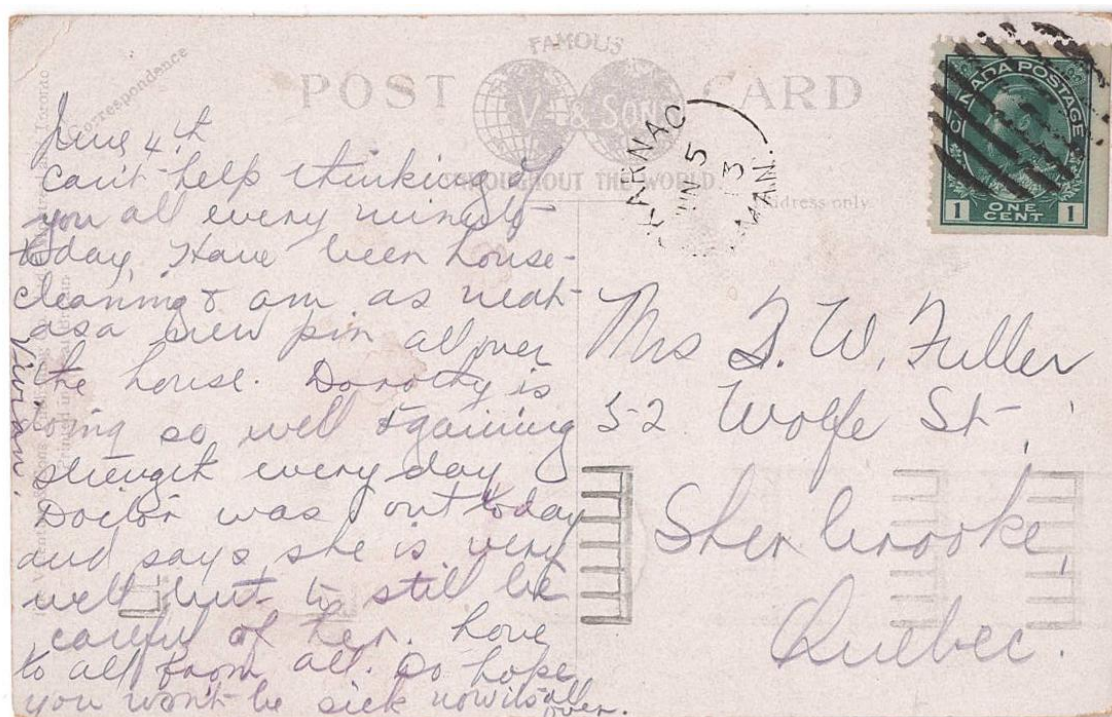 FAMOUS
POST CARD
V & SONS
THROUGHOUT THE WORLD.
Correspondence
Address only.
CANADA POSTAGE
1 ONE CENT 1
KARNAC
JUN 5
13
MAN.
June 4th
Can't help thinking of
you all every minute
today, Have been house-
cleaning & am as neat
as a new pin all over
the house. Dorothy is
doing so well & gaining
strength every day
Doctor was out today
and says she is very
well but to still be
careful of her. Love
to all from all. Do hope
you won't be sick now its all
over.
Vivian.
Mrs F. W. Fuller
52 Wolfe St.,
Sherbrooke,
Quebec.